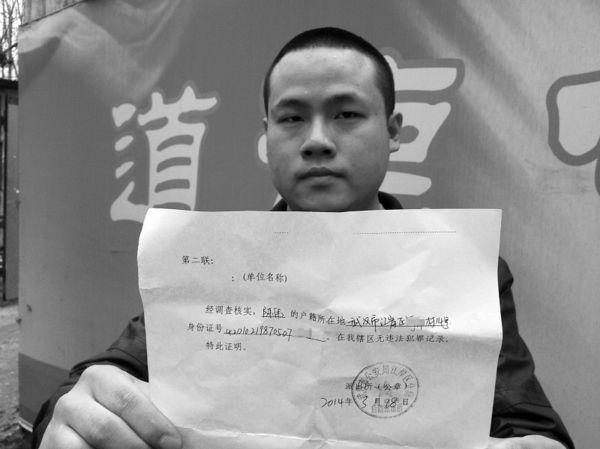 道
第二联:
: (单位名称)
经调查核实, 的户籍所在地 武汉市江岸区
身份证号 42010219870507 , 在我辖区无违法犯罪记录。
特此证明。
派出所(公章)
2014年 3月 28日